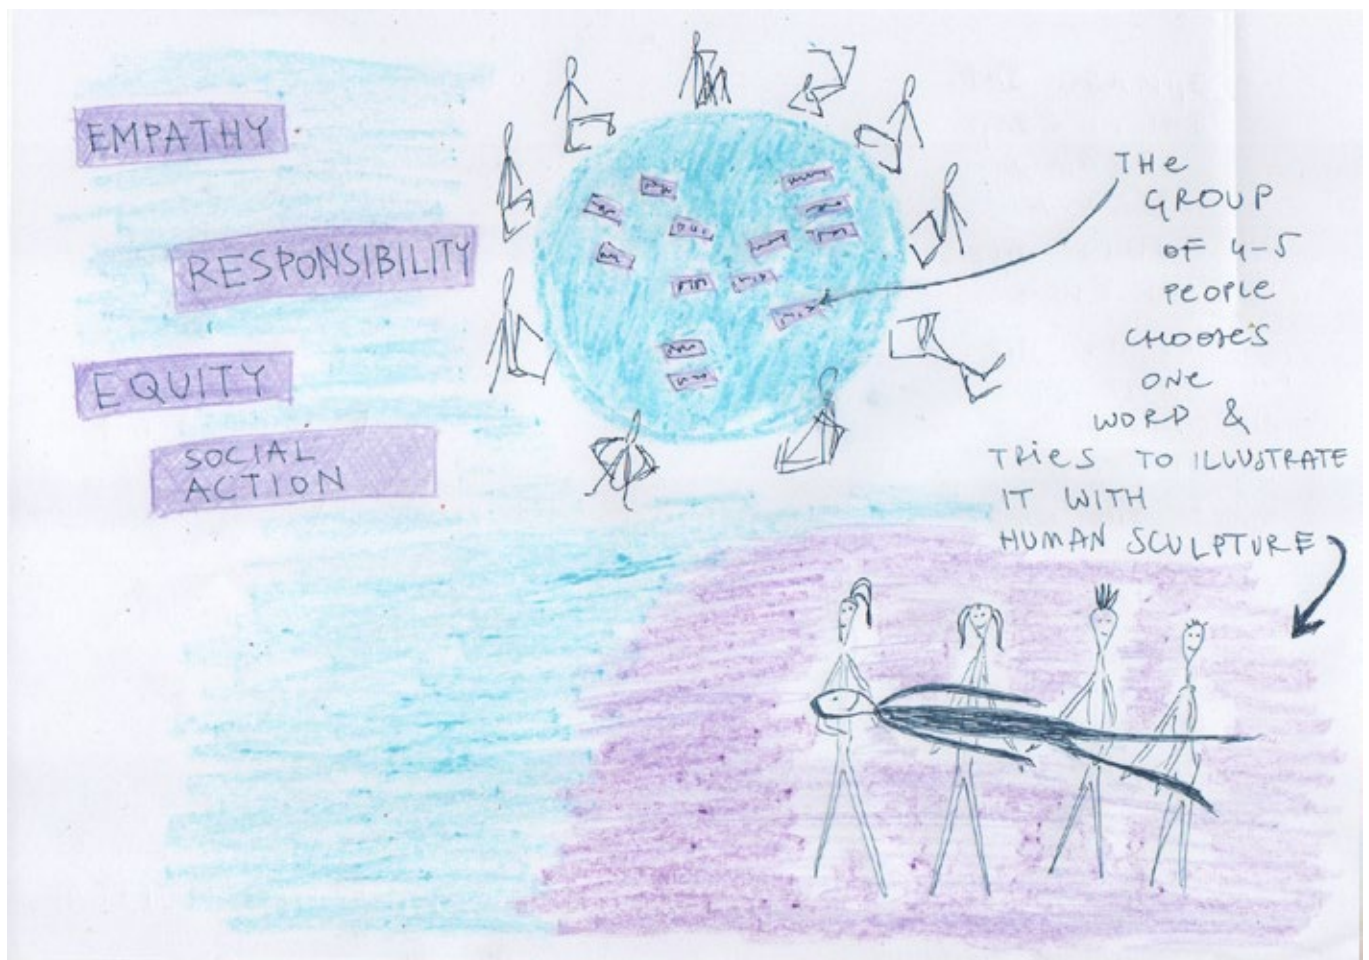 EMPATHY
RESPONSIBILITY
EQUITY
SOCIAL
ACTION
THE
GROUP
OF 4-5
PEOPLE
CHOOSES
ONE
WORD &
TRIES TO ILLUSTRATE
IT WITH
HUMAN SCULPTURE